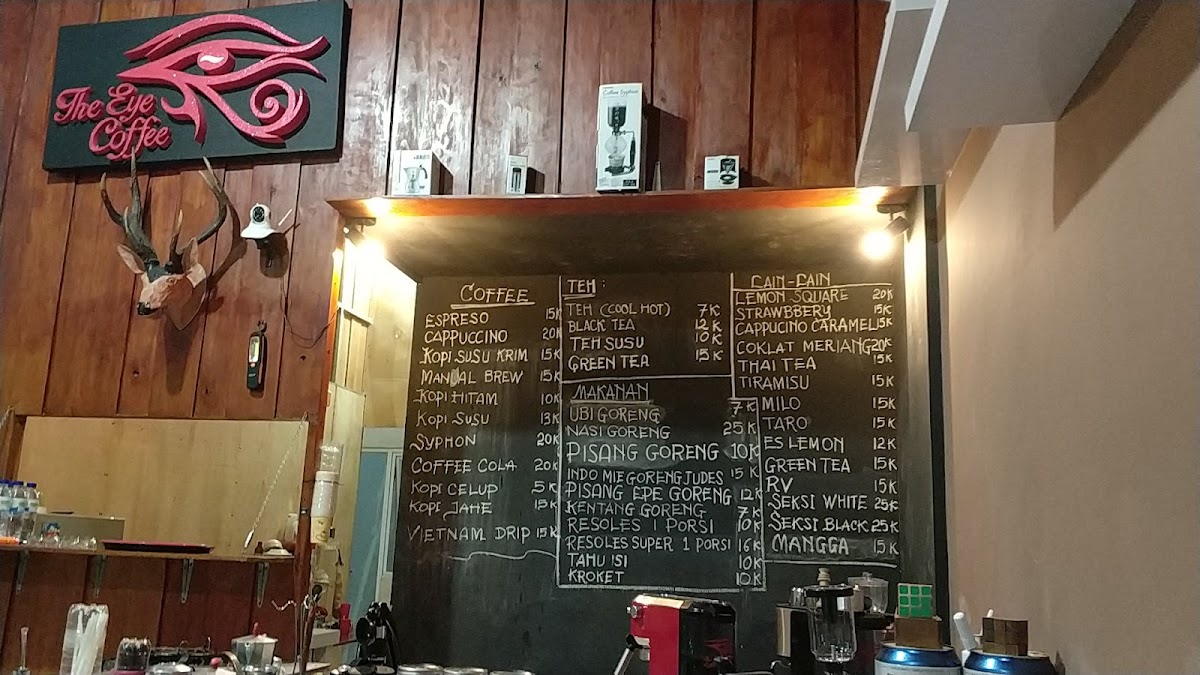 The Eye
Coffee
Coffee Syphon
COFFEE
ESPRESO 15K
CAPPUCCINO 20K
KOPI SUSU KRIM 15K
MANUAL BREW 15K
KOPI HITAM 10K
KOPI SUSU 13K
SYPHON 20K
COFFEE COLA 20K
KOPI CELUP 5K
KOPI JAHE 15K
VIETNAM DRIP 15K
TEH :
TEH (COOL HOT) 7K
BLACK TEA 12K
TEH SUSU 10K
GREEN TEA 15K
MAKANAN
UBI GORENG 7K
NASI GORENG 25K
PISANG GORENG 10K
INDO MIE GORENG JUDES 15K
PISANG EPE GORENG 12K
KENTANG GORENG 7K
RESOLES 1 PORSI 10K
RESOLES SUPER 1 PORSI 16K
TAHU ISI 10K
KROKET 10K
LAIN-LAIN
LEMON SQUARE 20K
STRAWBBERY 15K
CAPPUCINO CARAMEL 15K
COKLAT MERIANG 20K
THAI TEA 15K
TIRAMISU 15K
MILO 15K
TARO 15K
ES LEMON 12K
GREEN TEA 15K
RV 15K
SEKSI WHITE 25K
SEKSI BLACK 25K
MANGGA 15K